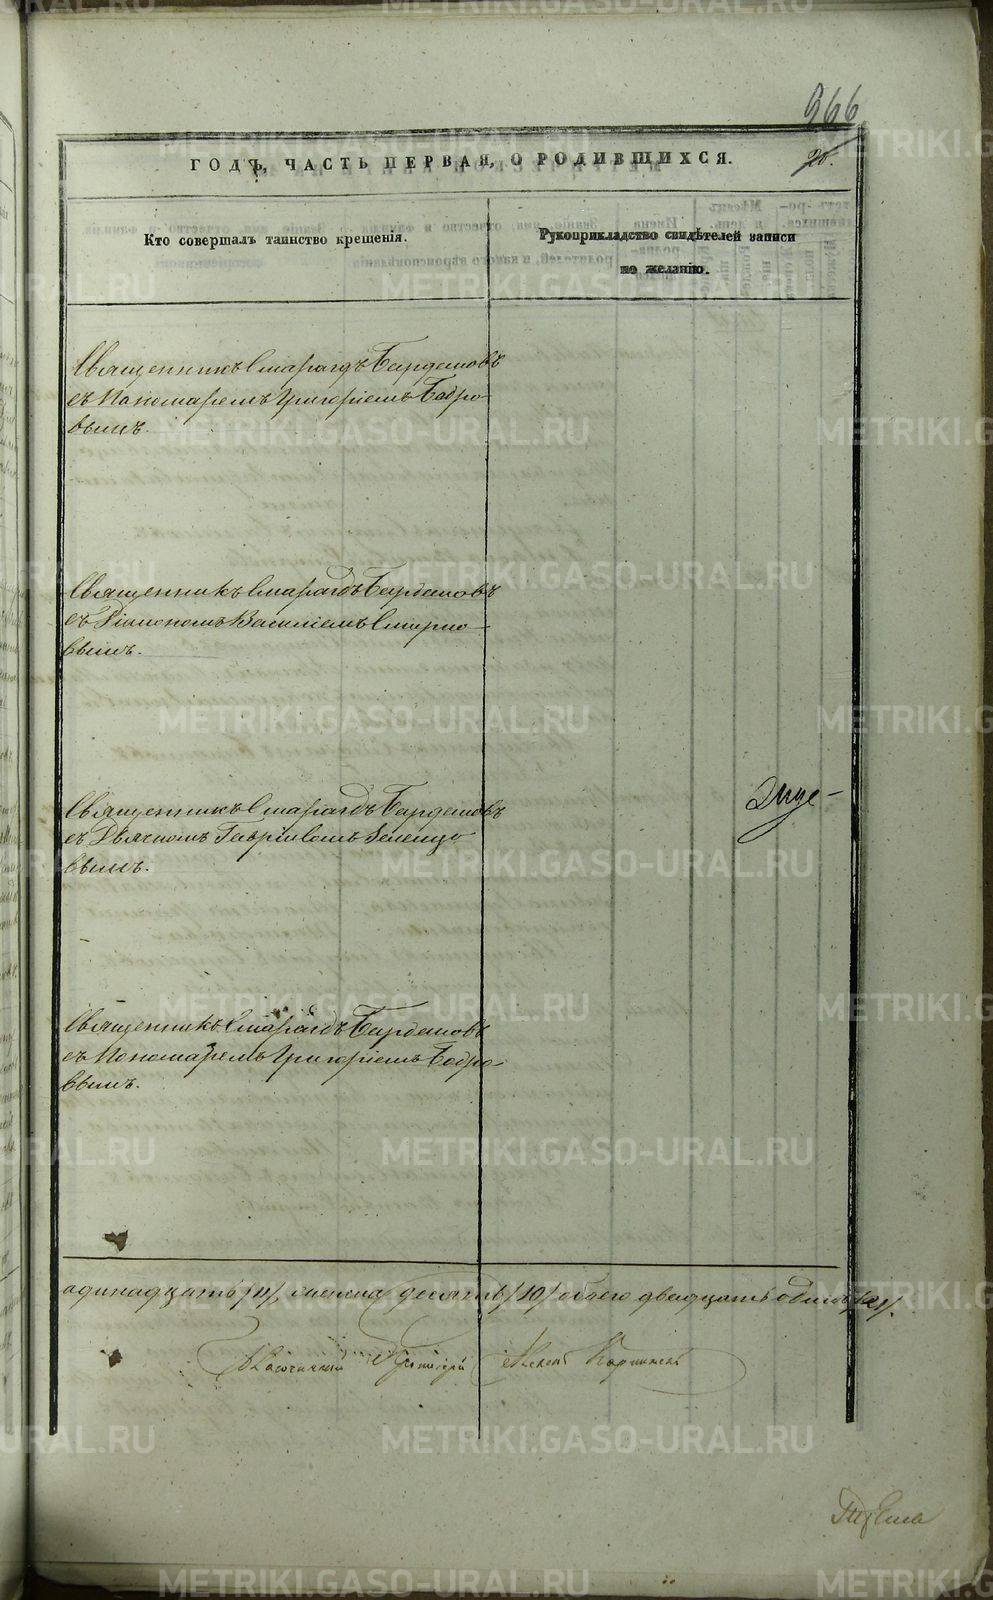 966
ГОДЪ, ЧАСТЬ ПЕРВАЯ, О РОДИВШИХСЯ.
Кто совершалъ таинство крещенія.
Рукоприкладство свидѣтелей записи
по желанію.
Священникъ Смарагдъ Бардашовъ
съ Пономаремъ Григоріемъ Бобро-
вымъ.
Священникъ Смарагдъ Бардашовъ
съ Діакономъ Василіемъ Смирно-
вымъ.
Священникъ Смарагдъ Бардашовъ
съ Дьячкомъ Гавріиломъ Зеленцо
вымъ.
Священникъ Смарагдъ Бардашовъ
съ Пономаремъ Григоріемъ Бобро-
вымъ.
адинадцать /11/, женска десять /10/ обоего двадцать одинъ /21/.
METRIKI.GASO-URAL.RU